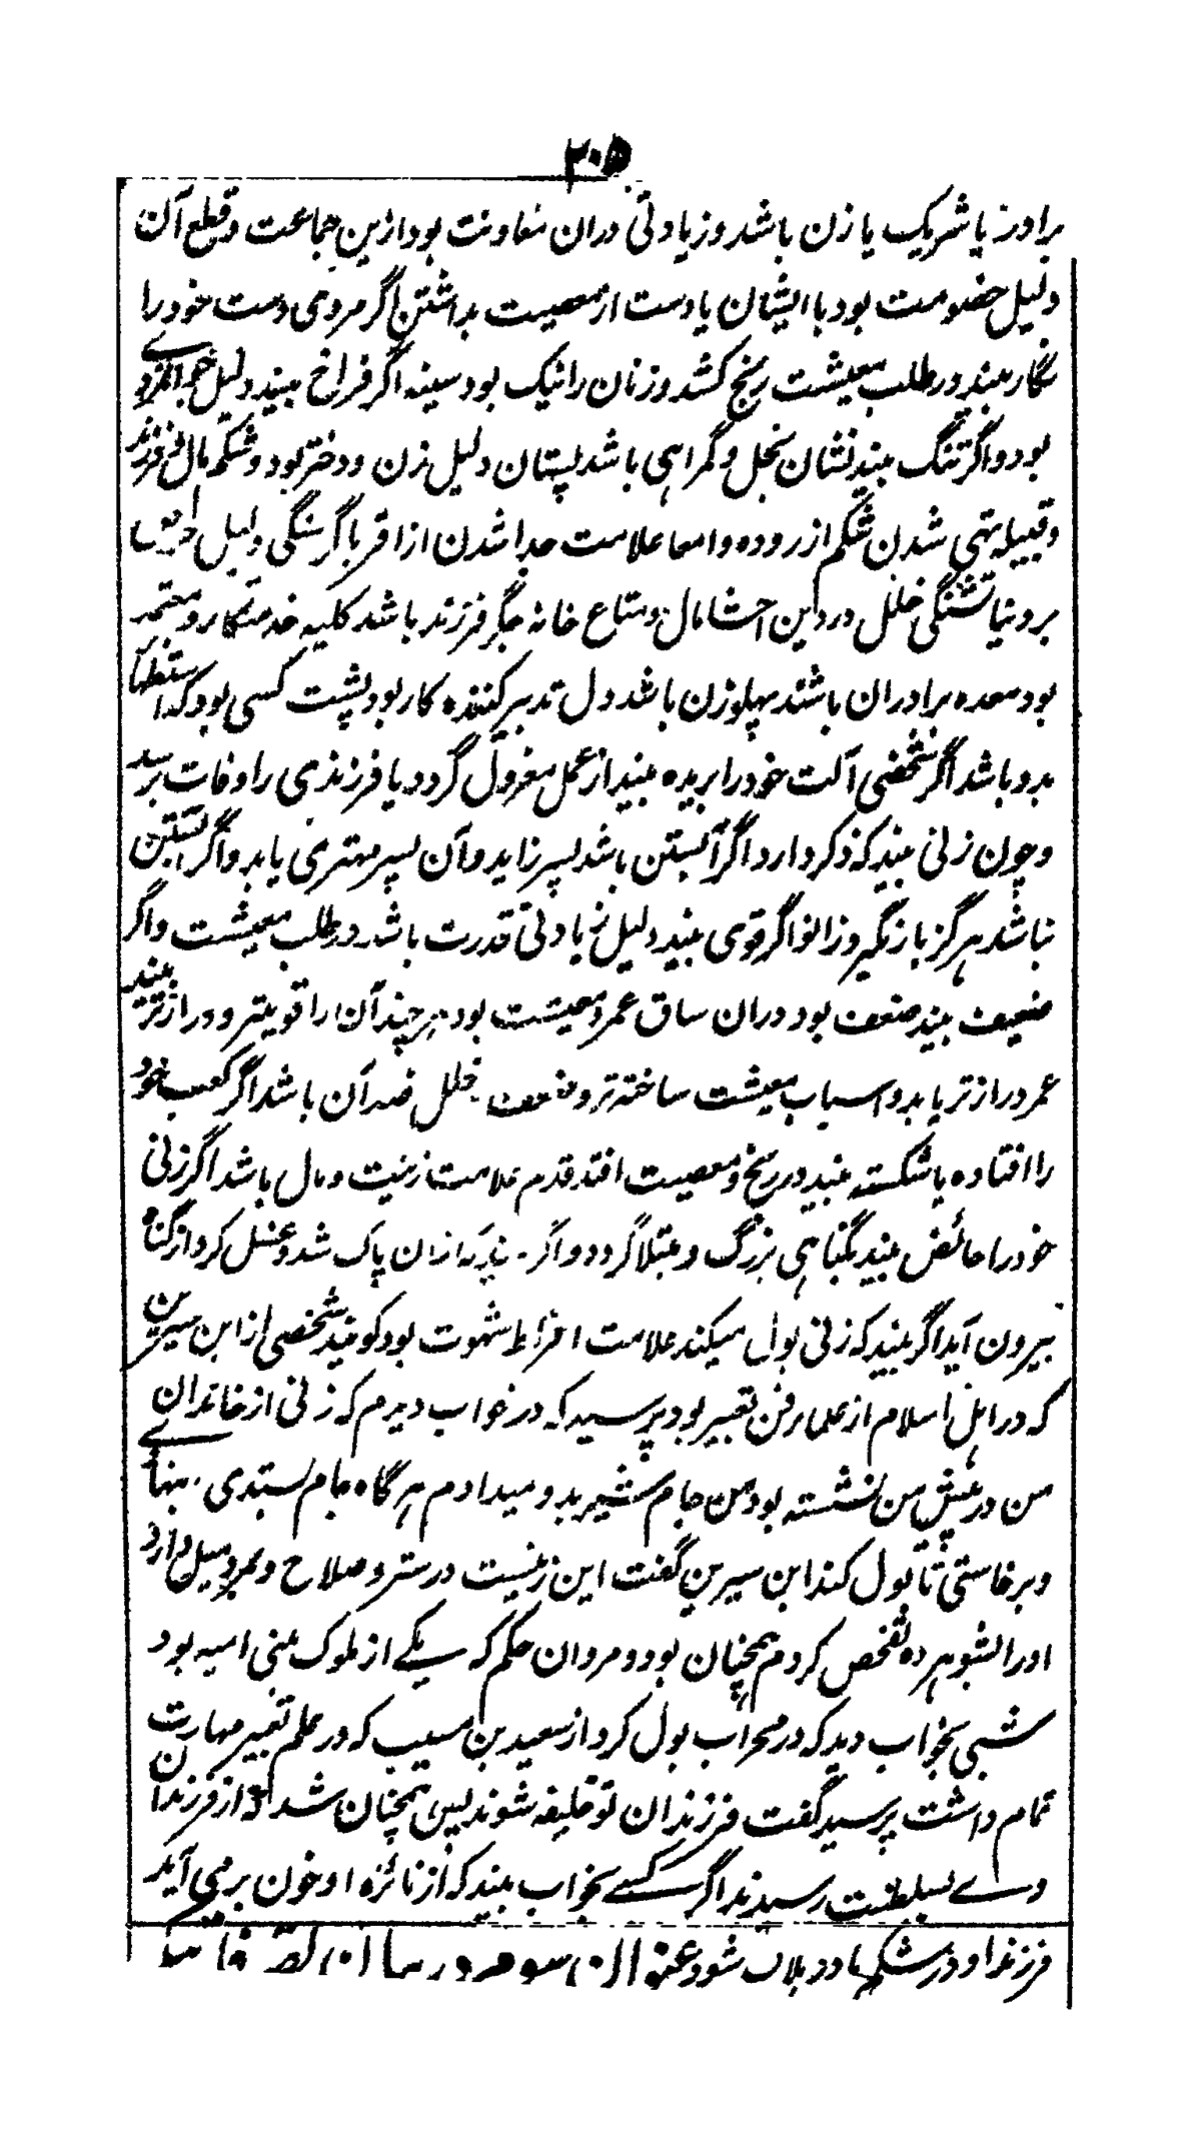 ۲۰۵
برادر یا شریک یا زن باشد و زیادتی دران معاونت بود ازین جماعت و قطع آن
دلیل خصومت بود با ایشان یا دست از معصیت بداشتن اگر مردی دست خود را
نگار بیند در طلب معیشت رنج کشد و زنان را نیک بود سینه اگر فراخ بیند دلیل جوانمردی
بود و اگر تنگ بیند نشان بخل و گمراهی باشد پستان دلیل زن و دختر بود و شکم مال و فرزند
و قبیله تهی شدن شکم از روده و امعا علامت جدا شدن از اقربا گرسنگی دلیل حرص
بر دنیا تشنگی خلل در دین احشا مال و متاع خانه جگر فرزند باشد کلیه خدمتگار و معتمد
بود معده برادران باشند پهلو زن باشد دل تدبیر کننده کار بود پشت کسی بود که استظهار
بدو باشد اگر شخصی آلت خود را بریده بیند از عمل معزول گردد یا فرزندی را وفات برسد
و چون زنی بیند که ذکر دارد اگر آبستن باشد پسر زاید و آن پسر مهتری یابد و اگر آبستن
نباشد هرگز بار نگیرد زانو اگر قوی بیند دلیل زیادتی قدرت باشد در طلب معیشت و اگر
ضعیف بیند ضعف بود دران ساق عمر و معیشت بود هر چند آن را قویتر و درازتر بیند
عمر درازتر یابد و اسباب معیشت ساخته تر و ضعف خلل ضد آن باشد اگر کعب خود
را افتاده یا شکسته بیند در رنج و معصیت افتد قدم علامت زینت و مال باشد اگر زنی
خود را حائض بیند بگناهی بزرگ و مبتلا گردد و اگر بیند که ازان پاک شد و غسل کرد از گناه
بیرون آید اگر بیند که زنی بول میکند علامت افراط شهوت بود گویند شخصی از ابن سیرین
که در اهل اسلام از علماء فن تعبیر بود پرسید که در خواب دیدم که زنی از خاندان
من در پیش من نشسته بود من جام شیر بدو میدادم هرگاه جام بستدی بنهادے
و برخاستی تا بول کند ابن سیرین گفت این زنیست در ستر و صلاح و بمرد میل دارد
او را بشوهر ده تفحص کردم همچنان بود و مروان حکم که یکے از ملوک بنی امیه بود
شبی بخواب دید که در محراب بول کرد از سعید بن مسیب که در علم تعبیر مهارت
تمام داشت پرسید گفت فرزندان تو خلیفه شوند پس همچنان شد و از فرزندان
وے بسلطنت رسیدند اگر کسے بخواب بیند که از نائژه او خون برمی آید
فرزند او در شکم مادر هلاک شود عنوان سوم در بیان